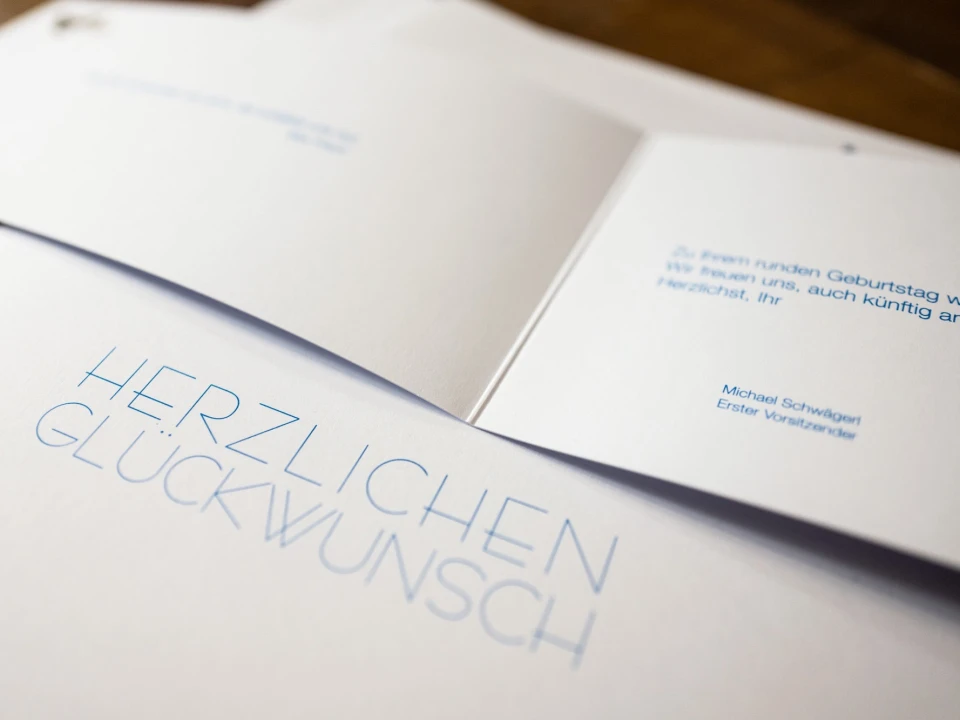 Zu Ihrem runden Geburtstag
Wir freuen uns, auch künftig
Herzlichst, Ihr
Michael Schwägerl
Erster Vorsitzender
HERZLICHEN
GLÜCKWUNSCH